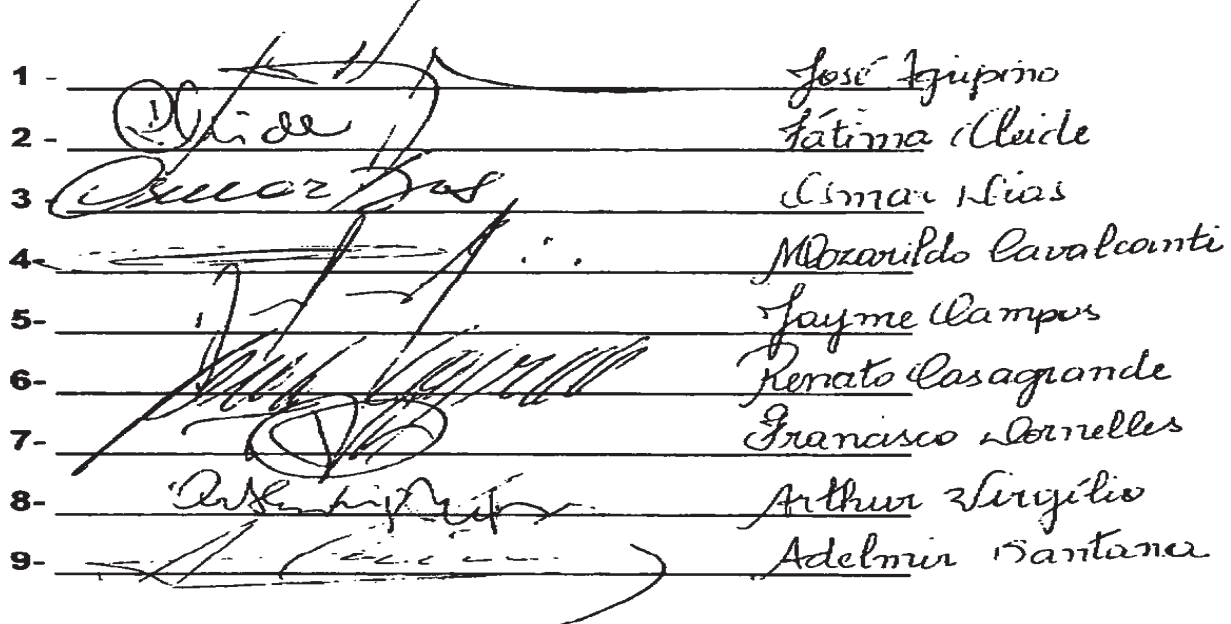 1 - José Agripino
2 - Cleide Fátima Cleide
3 - Osmar Dias Osmar Dias
4- Mozarildo Cavalcanti
5- Jayme Campos
6- Renato Casagrande
7- Francisco Dornelles
8- Arthur Virgílio Arthur Virgílio
9- Adelmir Santana